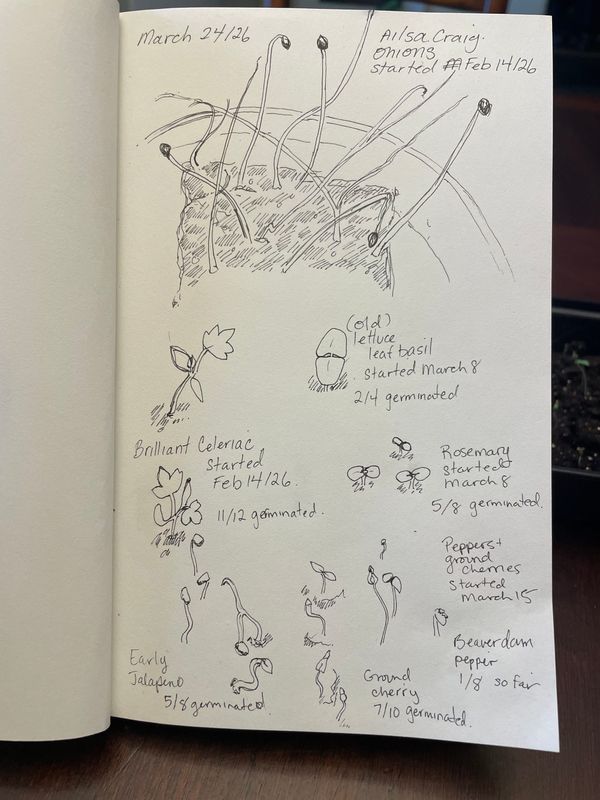 March 24/26
Ailsa Craig.
onions
started Feb 14/26
(old)
lettuce
leaf basil
started March 8
2/4 germinated
Brilliant Celeriac
started
Feb 14/26.
11/12 germinated.
Rosemary
started
March 8
5/8 germinated.
Peppers +
ground
cherries
started
March 15
Early
Jalapeno
5/8 germinated.
Ground
cherry
7/10 germinated.
Beaverdam
pepper
1/8 so far